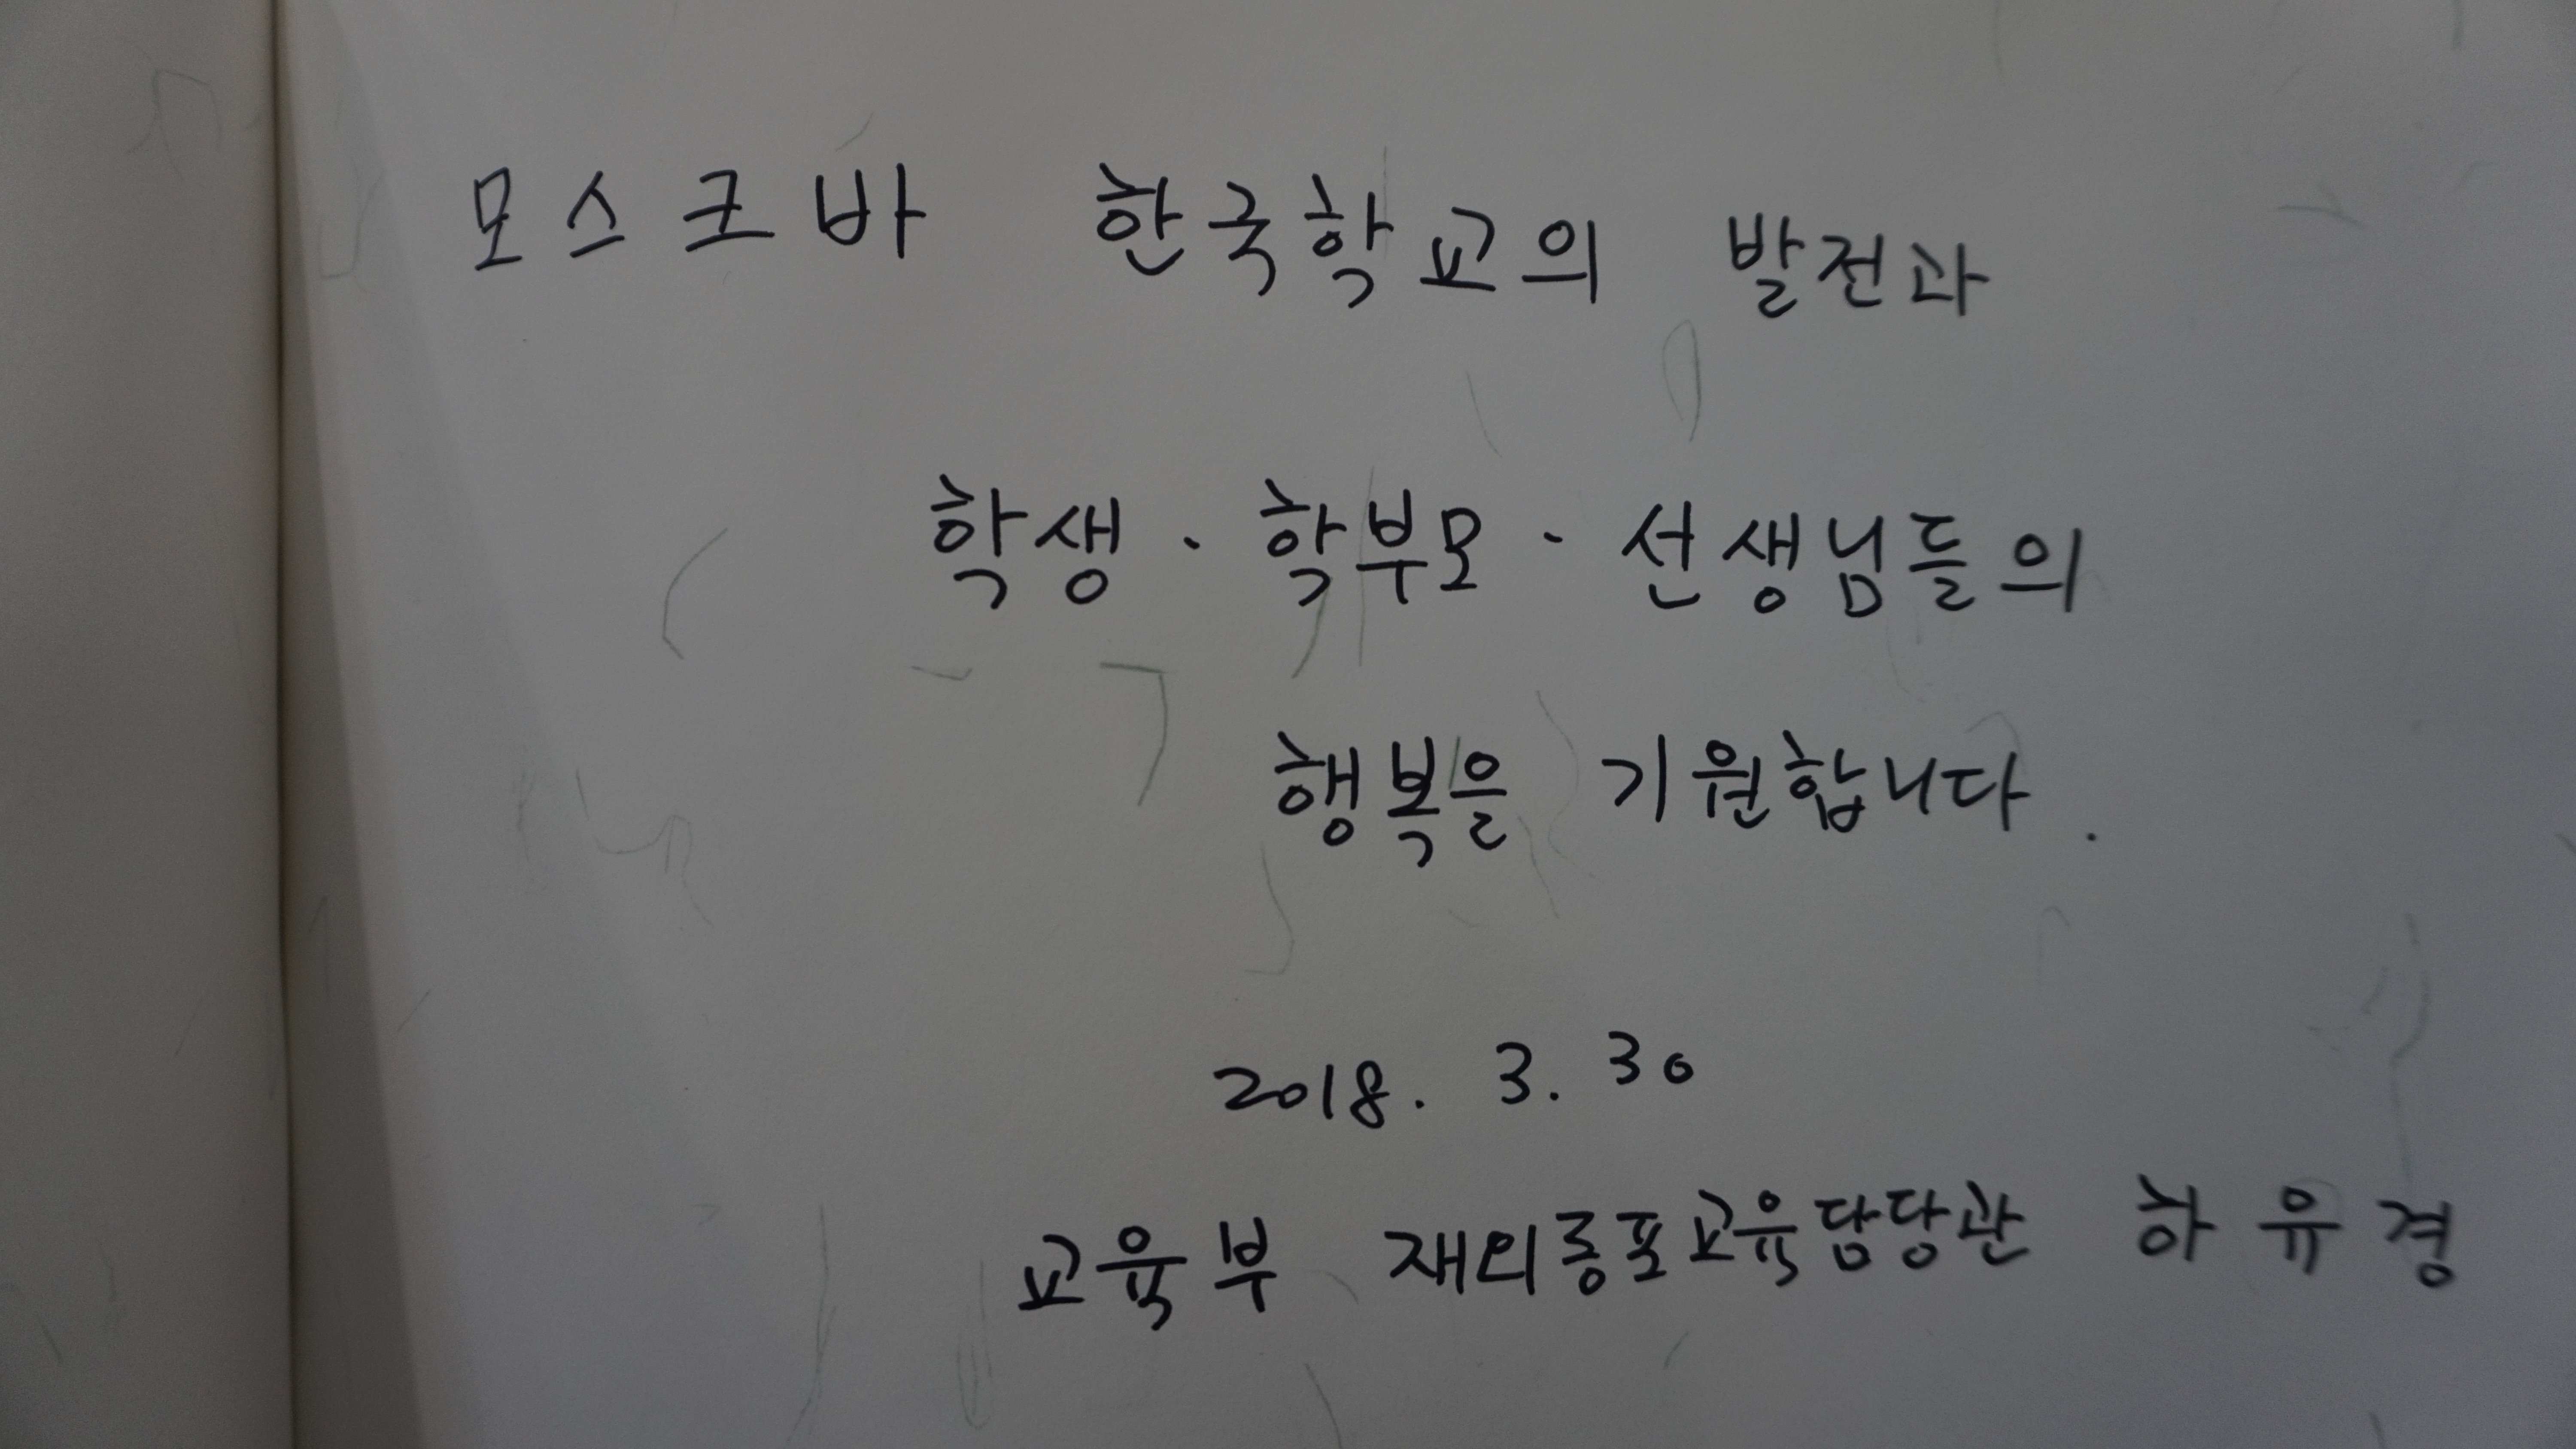 모스크바 한국학교의 발전과
학생·학부모·선생님들의
행복을 기원합니다.
2018. 3. 30
교육부 재외동포교육담당관 하유경